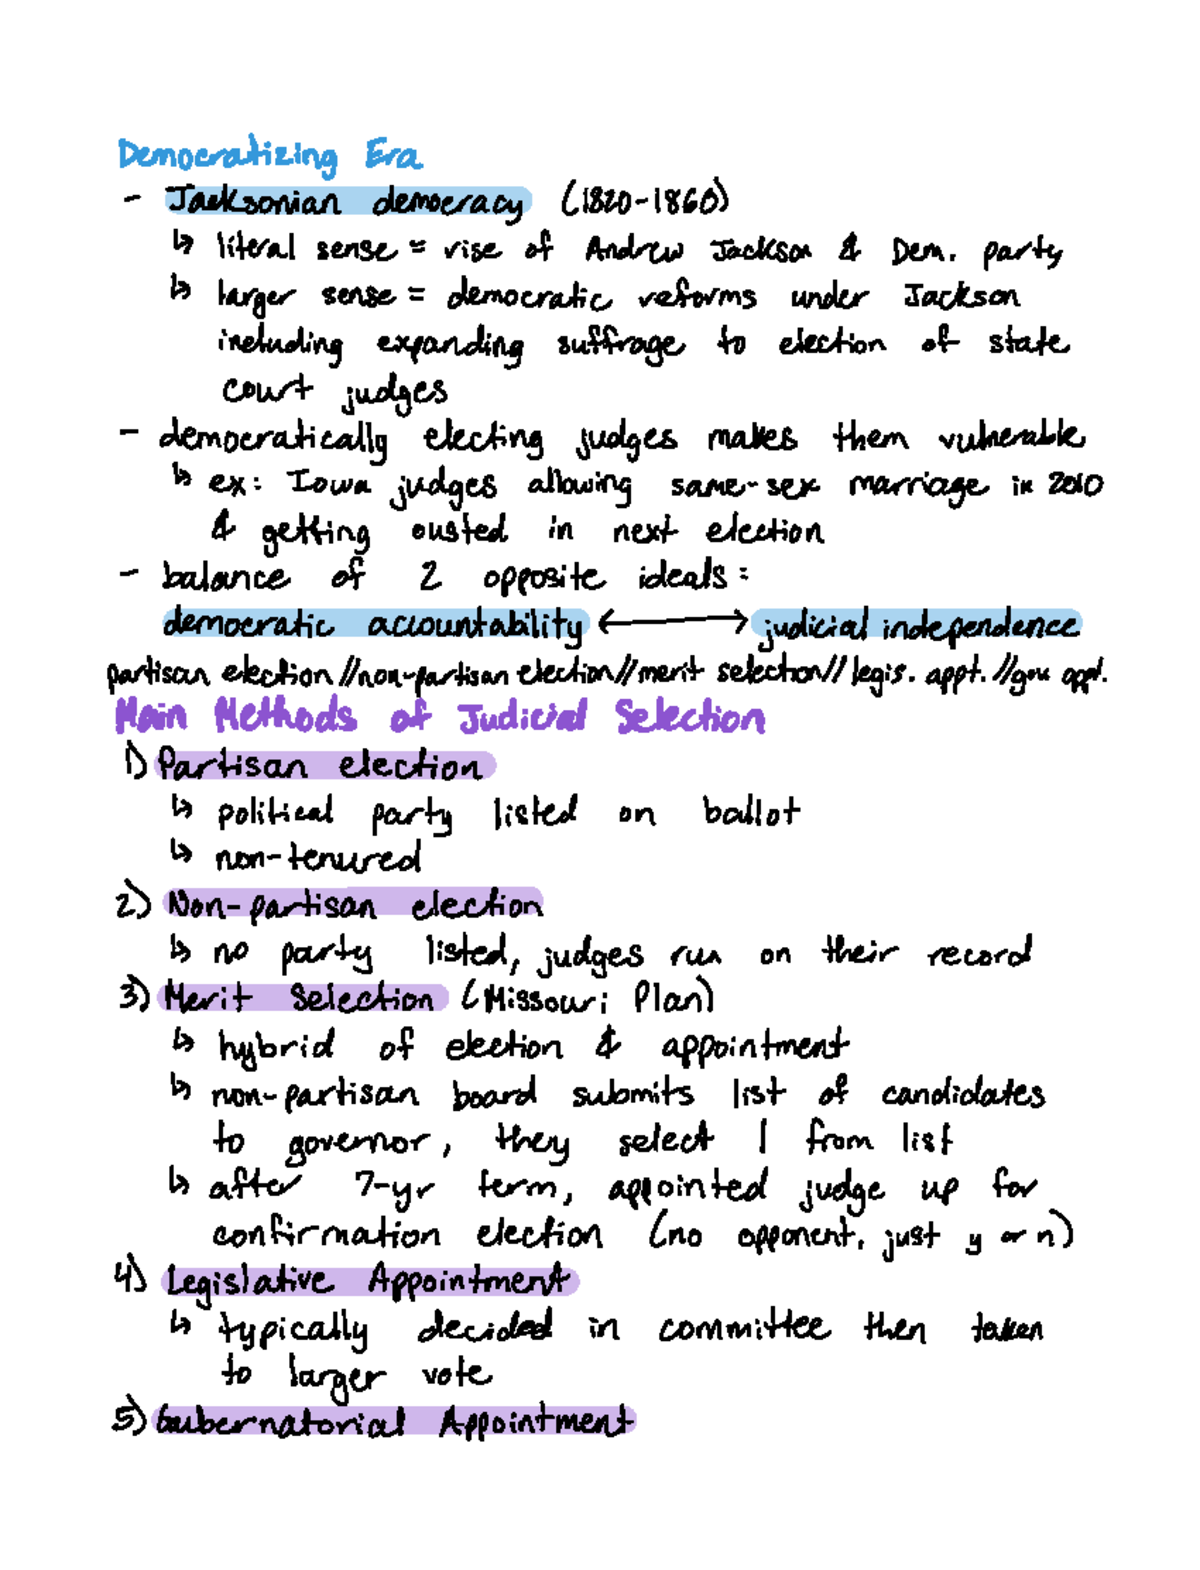 Democratizing Era
- Jacksonian democracy (1820-1860)
↳ literal sense = rise of Andrew Jackson & Dem. party
↳ larger sense = democratic reforms under Jackson
including expanding suffrage to election of state
court judges
- democratically electing judges makes them vulnerable
↳ ex: Iowa judges allowing same-sex marriage in 2010
& getting ousted in next election
- balance of 2 opposite ideals:
democratic accountability ⟷ judicial independence
partisan election // non-partisan election // merit selection // legis. appt. // gov. appt.
Main Methods of Judicial Selection
1) Partisan election
↳ political party listed on ballot
↳ non-tenured
2) Non-partisan election
↳ no party listed, judges run on their record
3) Merit Selection (Missouri Plan)
↳ hybrid of election & appointment
↳ non-partisan board submits list of candidates
to governor, they select 1 from list
↳ after 7-yr term, appointed judge up for
confirmation election (no opponent, just y or n)
4) Legislative Appointment
↳ typically decided in committee then taken
to larger vote
5) Gubernatorial Appointment